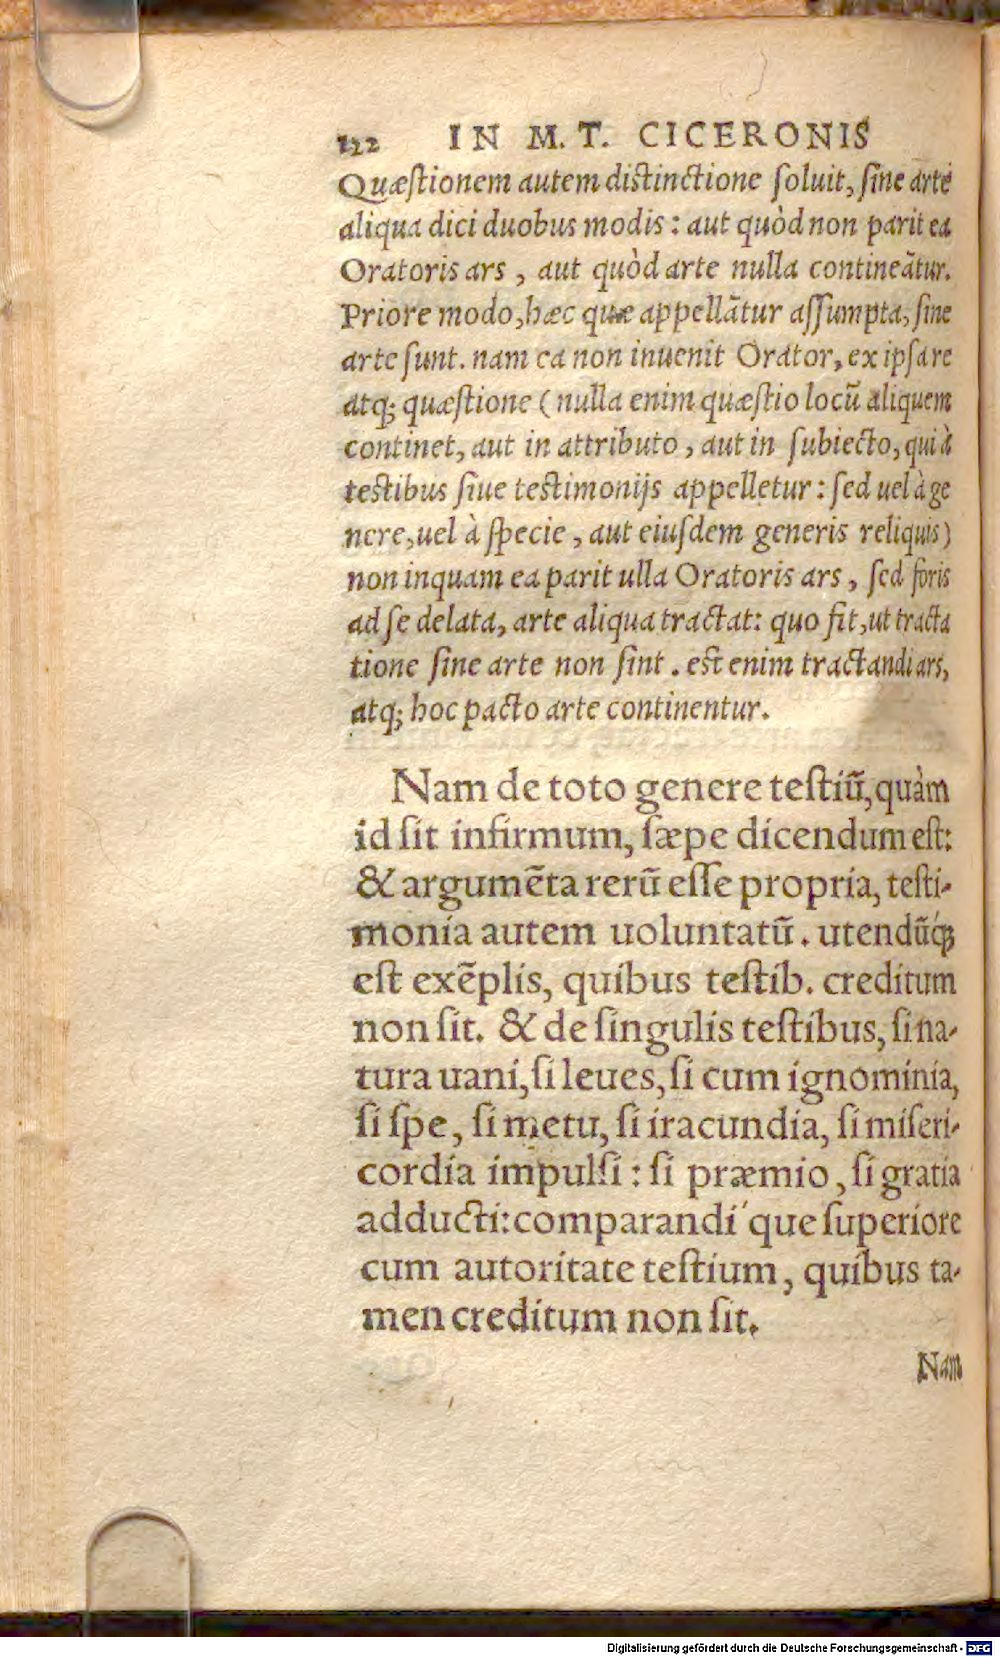 122 IN M. T. CICERONIS
Quæſtionem autem distinctione ſoluit, ſine arte
aliqua dici duobus modis: aut quòd non parit ea
Oratoris ars, aut quòd arte nulla contineātur.
Priore modo, hæc quæ appellātur aſſumpta, ſine
arte ſunt. nam ea non inuenit Orator, ex ipſa re
atq; quæſtione (nulla enim quæſtio locū aliquem
continet, aut in attributo, aut in ſubiecto, qui à
testibus ſiue testimonijs appelletur: ſed uel à ge
nere, uel à ſpecie, aut eiuſdem generis reliquis)
non inquam ea parit ulla Oratoris ars, ſed foris
ad ſe delata, arte aliqua tractat: quo fit, ut tracta
tione ſine arte non ſint. est enim tractandi ars,
atq; hoc pacto arte continentur.
Nam de toto genere teſtiū, quàm
id ſit infirmum, ſæpe dicendum eſt:
& argumēta rerū eſſe propria, teſti-
monia autem uoluntatū. utendūq́;
eſt exēplis, quibus teſtib. creditum
non ſit. & de ſingulis teſtibus, ſi na-
tura uani, ſi leues, ſi cum ignominia,
ſi ſpe, ſi metu, ſi iracundia, ſi miſeri-
cordia impulſi: ſi præmio, ſi gratia
adducti: comparandi´que ſuperiore
cum autoritate teſtium, quibus ta-
men creditum non ſit.
Nam
Digitalisierung gefördert durch die Deutsche Forschungsgemeinschaft - DFG